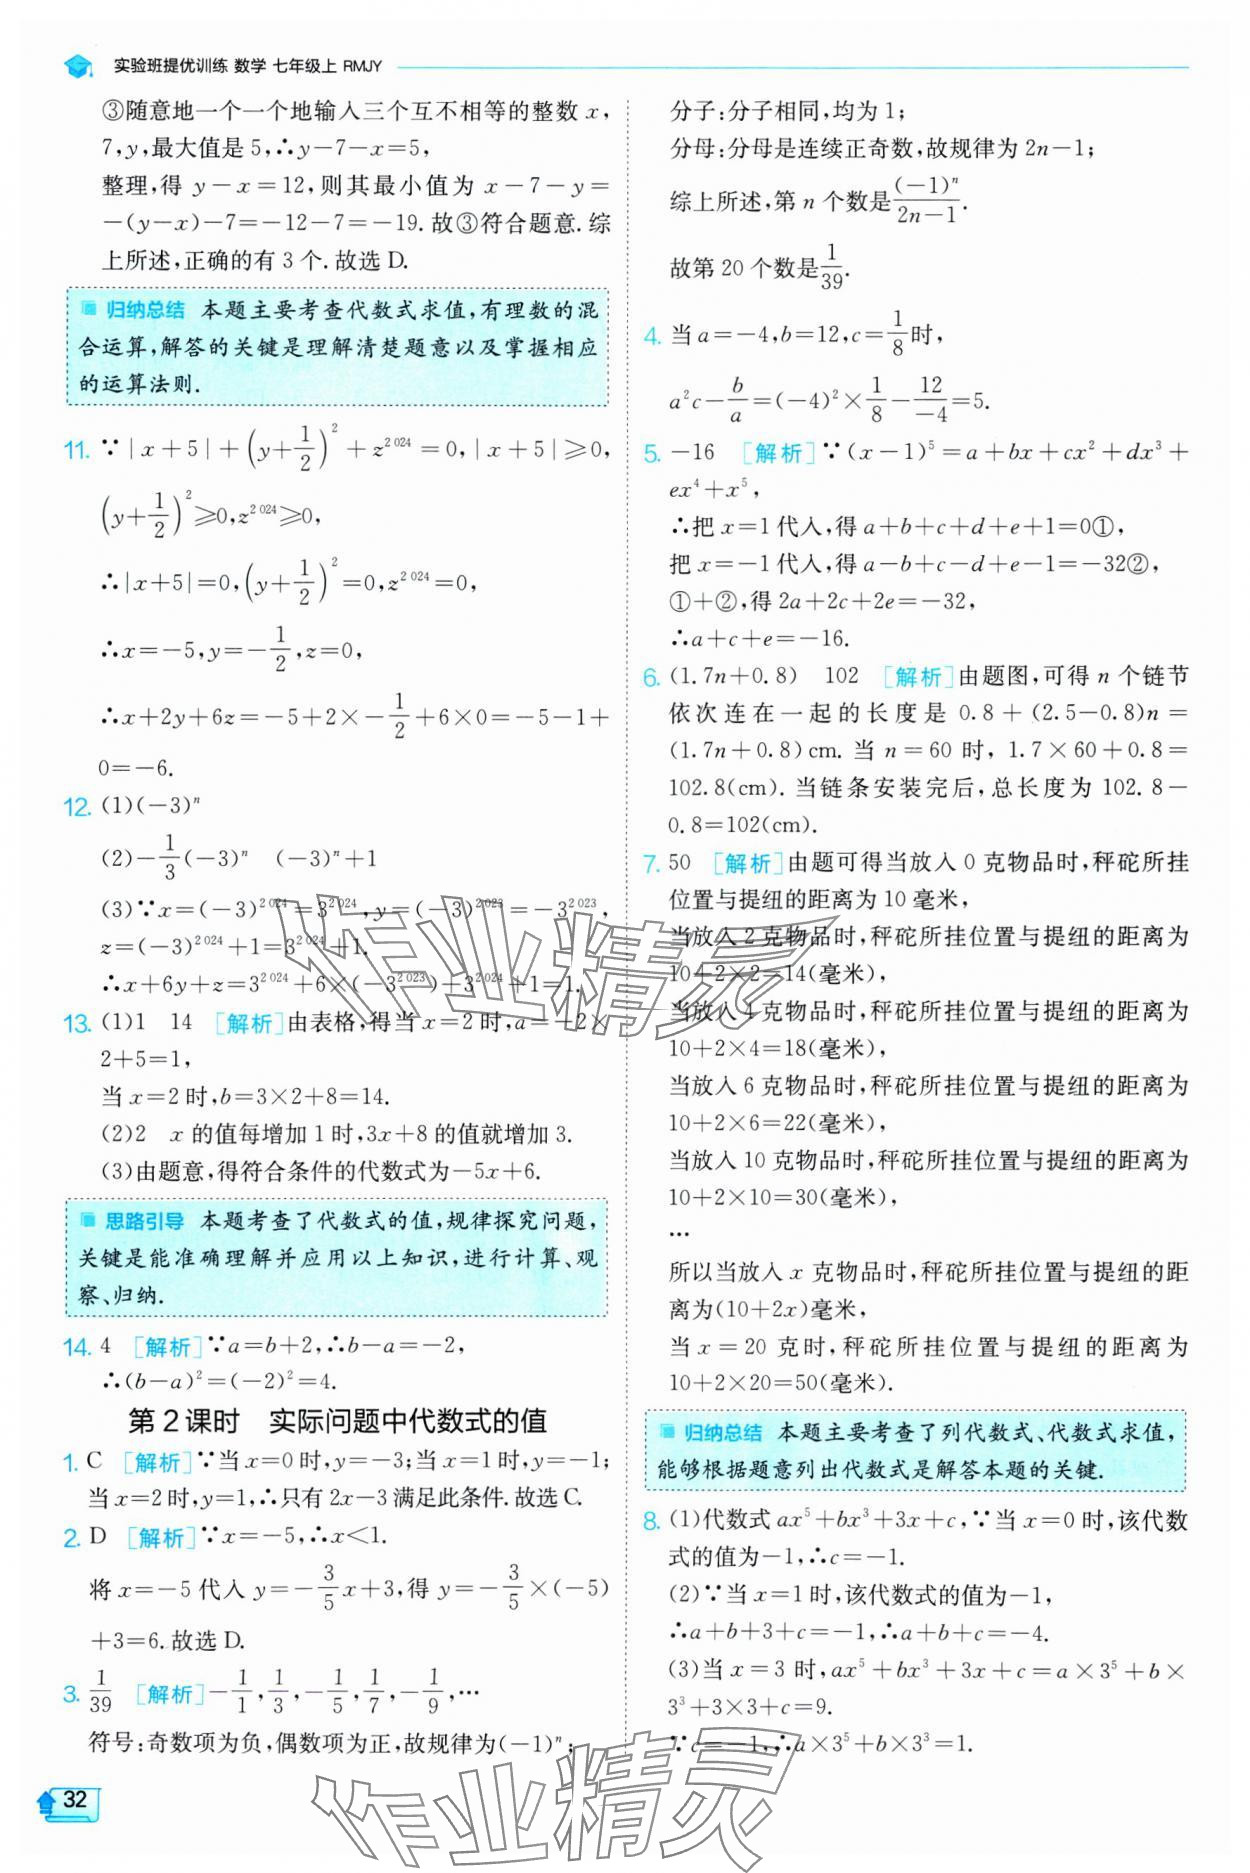 实验班提优训练 数学 七年级上 RMJY
③随意地一个一个地输入三个互不相等的整数 x,
7,y,最大值是 5,∴y-7-x=5,
整理,得 y-x=12,则其最小值为 x-7-y=
-(y-x)-7=-12-7=-19.故③符合题意.综
上所述,正确的有 3 个.故选 D.
归纳总结 本题主要考查代数式求值,有理数的混
合运算,解答的关键是理解清楚题意以及掌握相应
的运算法则.
11. ∵|x+5|+(y+1/2)²+z²⁰²⁴=0,|x+5|≥0,
(y+1/2)²≥0,z²⁰²⁴≥0,
∴|x+5|=0,(y+1/2)²=0,z²⁰²⁴=0,
∴x=-5,y=-1/2,z=0,
∴x+2y+6z=-5+2×-1/2+6×0=-5-1+
0=-6.
12. (1)(-3)ⁿ
(2)-1/3(-3)ⁿ (-3)ⁿ+1
(3)∵x=(-3)²⁰²⁴=3²⁰²⁴,y=(-3)²⁰²³=-3²⁰²³,
z=(-3)²⁰²⁴+1=3²⁰²⁴+1.
∴x+6y+z=3²⁰²⁴+6×(-3²⁰²³)+3²⁰²⁴+1=1.
13. (1)1 14 [解析]由表格,得当 x=2 时,a=-2×
2+5=1,
当 x=2 时,b=3×2+8=14.
(2)2 x 的值每增加 1 时,3x+8 的值就增加 3.
(3)由题意,得符合条件的代数式为-5x+6.
思路引导 本题考查了代数式的值,规律探究问题,
关键是能准确理解并应用以上知识,进行计算、观
察、归纳.
14. 4 [解析]∵a=b+2,∴b-a=-2,
∴(b-a)²=(-2)²=4.
第 2 课时 实际问题中代数式的值
1. C [解析]∵当 x=0 时,y=-3;当 x=1 时,y=-1;
当 x=2 时,y=1,∴只有 2x-3 满足此条件.故选 C.
2. D [解析]∵x=-5,∴x<1.
将 x=-5 代入 y=-3/5x+3,得 y=-3/5×(-5)
+3=6.故选 D.
3. 1/39 [解析]-1/1,1/3,-1/5,1/7,-1/9,…
符号:奇数项为负,偶数项为正,故规律为(-1)ⁿ;
32
分子:分子相同,均为 1;
分母:分母是连续正奇数,故规律为 2n-1;
综上所述,第 n 个数是(-1)ⁿ/2n-1.
故第 20 个数是1/39.
4. 当 a=-4,b=12,c=1/8时,
a²c-b/a=(-4)²×1/8-12/-4=5.
5. -16 [解析]∵(x-1)⁵=a+bx+cx²+dx³+
ex⁴+x⁵,
∴把 x=1 代入,得 a+b+c+d+e+1=0①,
把 x=-1 代入,得 a-b+c-d+e-1=-32②,
①+②,得 2a+2c+2e=-32,
∴a+c+e=-16.
6. (1.7n+0.8) 102 [解析]由题图,可得 n 个链节
依次连在一起的长度是 0.8+(2.5-0.8)n=
(1.7n+0.8)cm. 当 n=60 时,1.7×60+0.8=
102.8(cm). 当链条安装完后,总长度为 102.8-
0.8=102(cm).
7. 50 [解析]由题可得当放入 0 克物品时,秤砣所挂
位置与提纽的距离为 10 毫米,
当放入 2 克物品时,秤砣所挂位置与提纽的距离为
10+2×2=14(毫米),
当放入 4 克物品时,秤砣所挂位置与提纽的距离为
10+2×4=18(毫米),
当放入 6 克物品时,秤砣所挂位置与提纽的距离为
10+2×6=22(毫米),
当放入 10 克物品时,秤砣所挂位置与提纽的距离为
10+2×10=30(毫米),
…
所以当放入 x 克物品时,秤砣所挂位置与提纽的距
离为(10+2x)毫米,
当 x=20 克时,秤砣所挂位置与提纽的距离为
10+2×20=50(毫米).
归纳总结 本题主要考查了列代数式、代数式求值,
能够根据题意列出代数式是解答本题的关键.
8. (1)代数式 ax⁵+bx³+3x+c,∵当 x=0 时,该代数
式的值为-1,∴c=-1.
(2)∵当 x=1 时,该代数式的值为-1,
∴a+b+3+c=-1,∴a+b+c=-4.
(3)当 x=3 时,ax⁵+bx³+3x+c=a×3⁵+b×
3³+3×3+c=9.
∵c=-1,∴a×3⁵+b×3³=1.
作业精灵
作业精灵